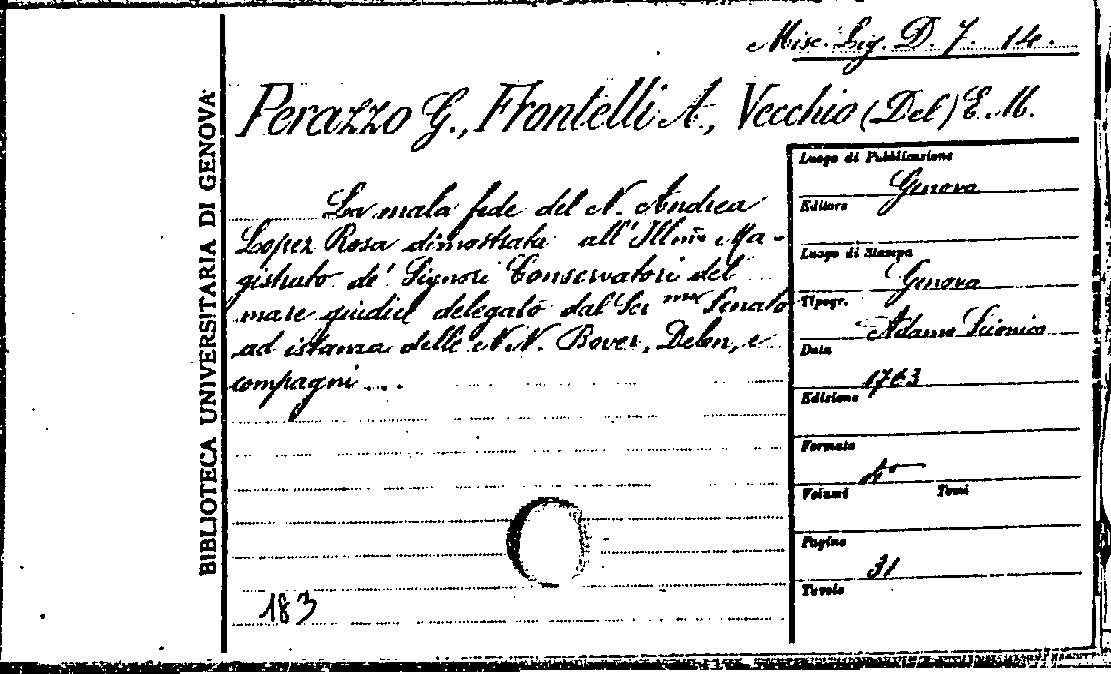 Misc. Lig. D. 7. 14.
Perazzo G., Frontelli A., Vecchio (Del) E. M.
BIBLIOTECA UNIVERSITARIA DI GENOVA
La mala fede del N. Andrea
Lopez Rosa dimostrata all' Illmo Ma-
gistrato de' Signori Conservatori del
mare giudici delegato dal Ser mo Senato
ad istanza delle N.N. Bover, Delon, e
compagni ...
183
Luogo di Pubblicazione
Genova
Editore
Luogo di Stampa
Genova
Tipogr.
Adamo Scionico
Data
1763
Edizione
Formato
4°
Volumi Tomi
Pagine
31
Tavole